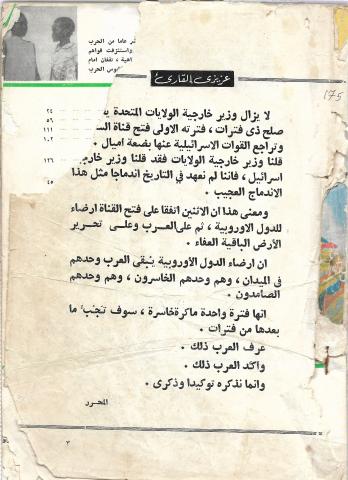 عاما من الحرب
واستنزفت قواهم
تقفان امام
الحرب
عزيزي القارئ
١٧٥
لا يزال وزير خارجية الولايات المتحدة
صلح ذى فترات ، فترته الاولى فتح قناة
وتراجع القوات الاسرائيلية عنها بضعة اميال .
قلنا وزير خارجية الولايات فقد قلنا وزير
اسرائيل ، فاننا لم نعهد في التاريخ اندماجا مثل هذا
الاندماج العجيب .
ومعنى هذا ان الاثنين اتفقا على فتح القناة ارضاء
للدول الاوروبية ، ثم على العرب وعلى تحرير
الأرض الباقية العفاء .
ان ارضاء الدول الأوروبية يبقى العرب وحدهم
في الميدان ، وهم وحدهم الخاسرون ، وهم وحدهم
الصامدون .
انها فترة واحدة ماكرة خاسرة ، سوف تجب ما
بعدها من فترات .
عرف العرب ذلك .
واكد العرب ذلك .
وانما نذكره توكيدا وذكرى .
المحرر
٢٤
٥٦
١١١
١٠٢
١٢٦
٤٥
٣